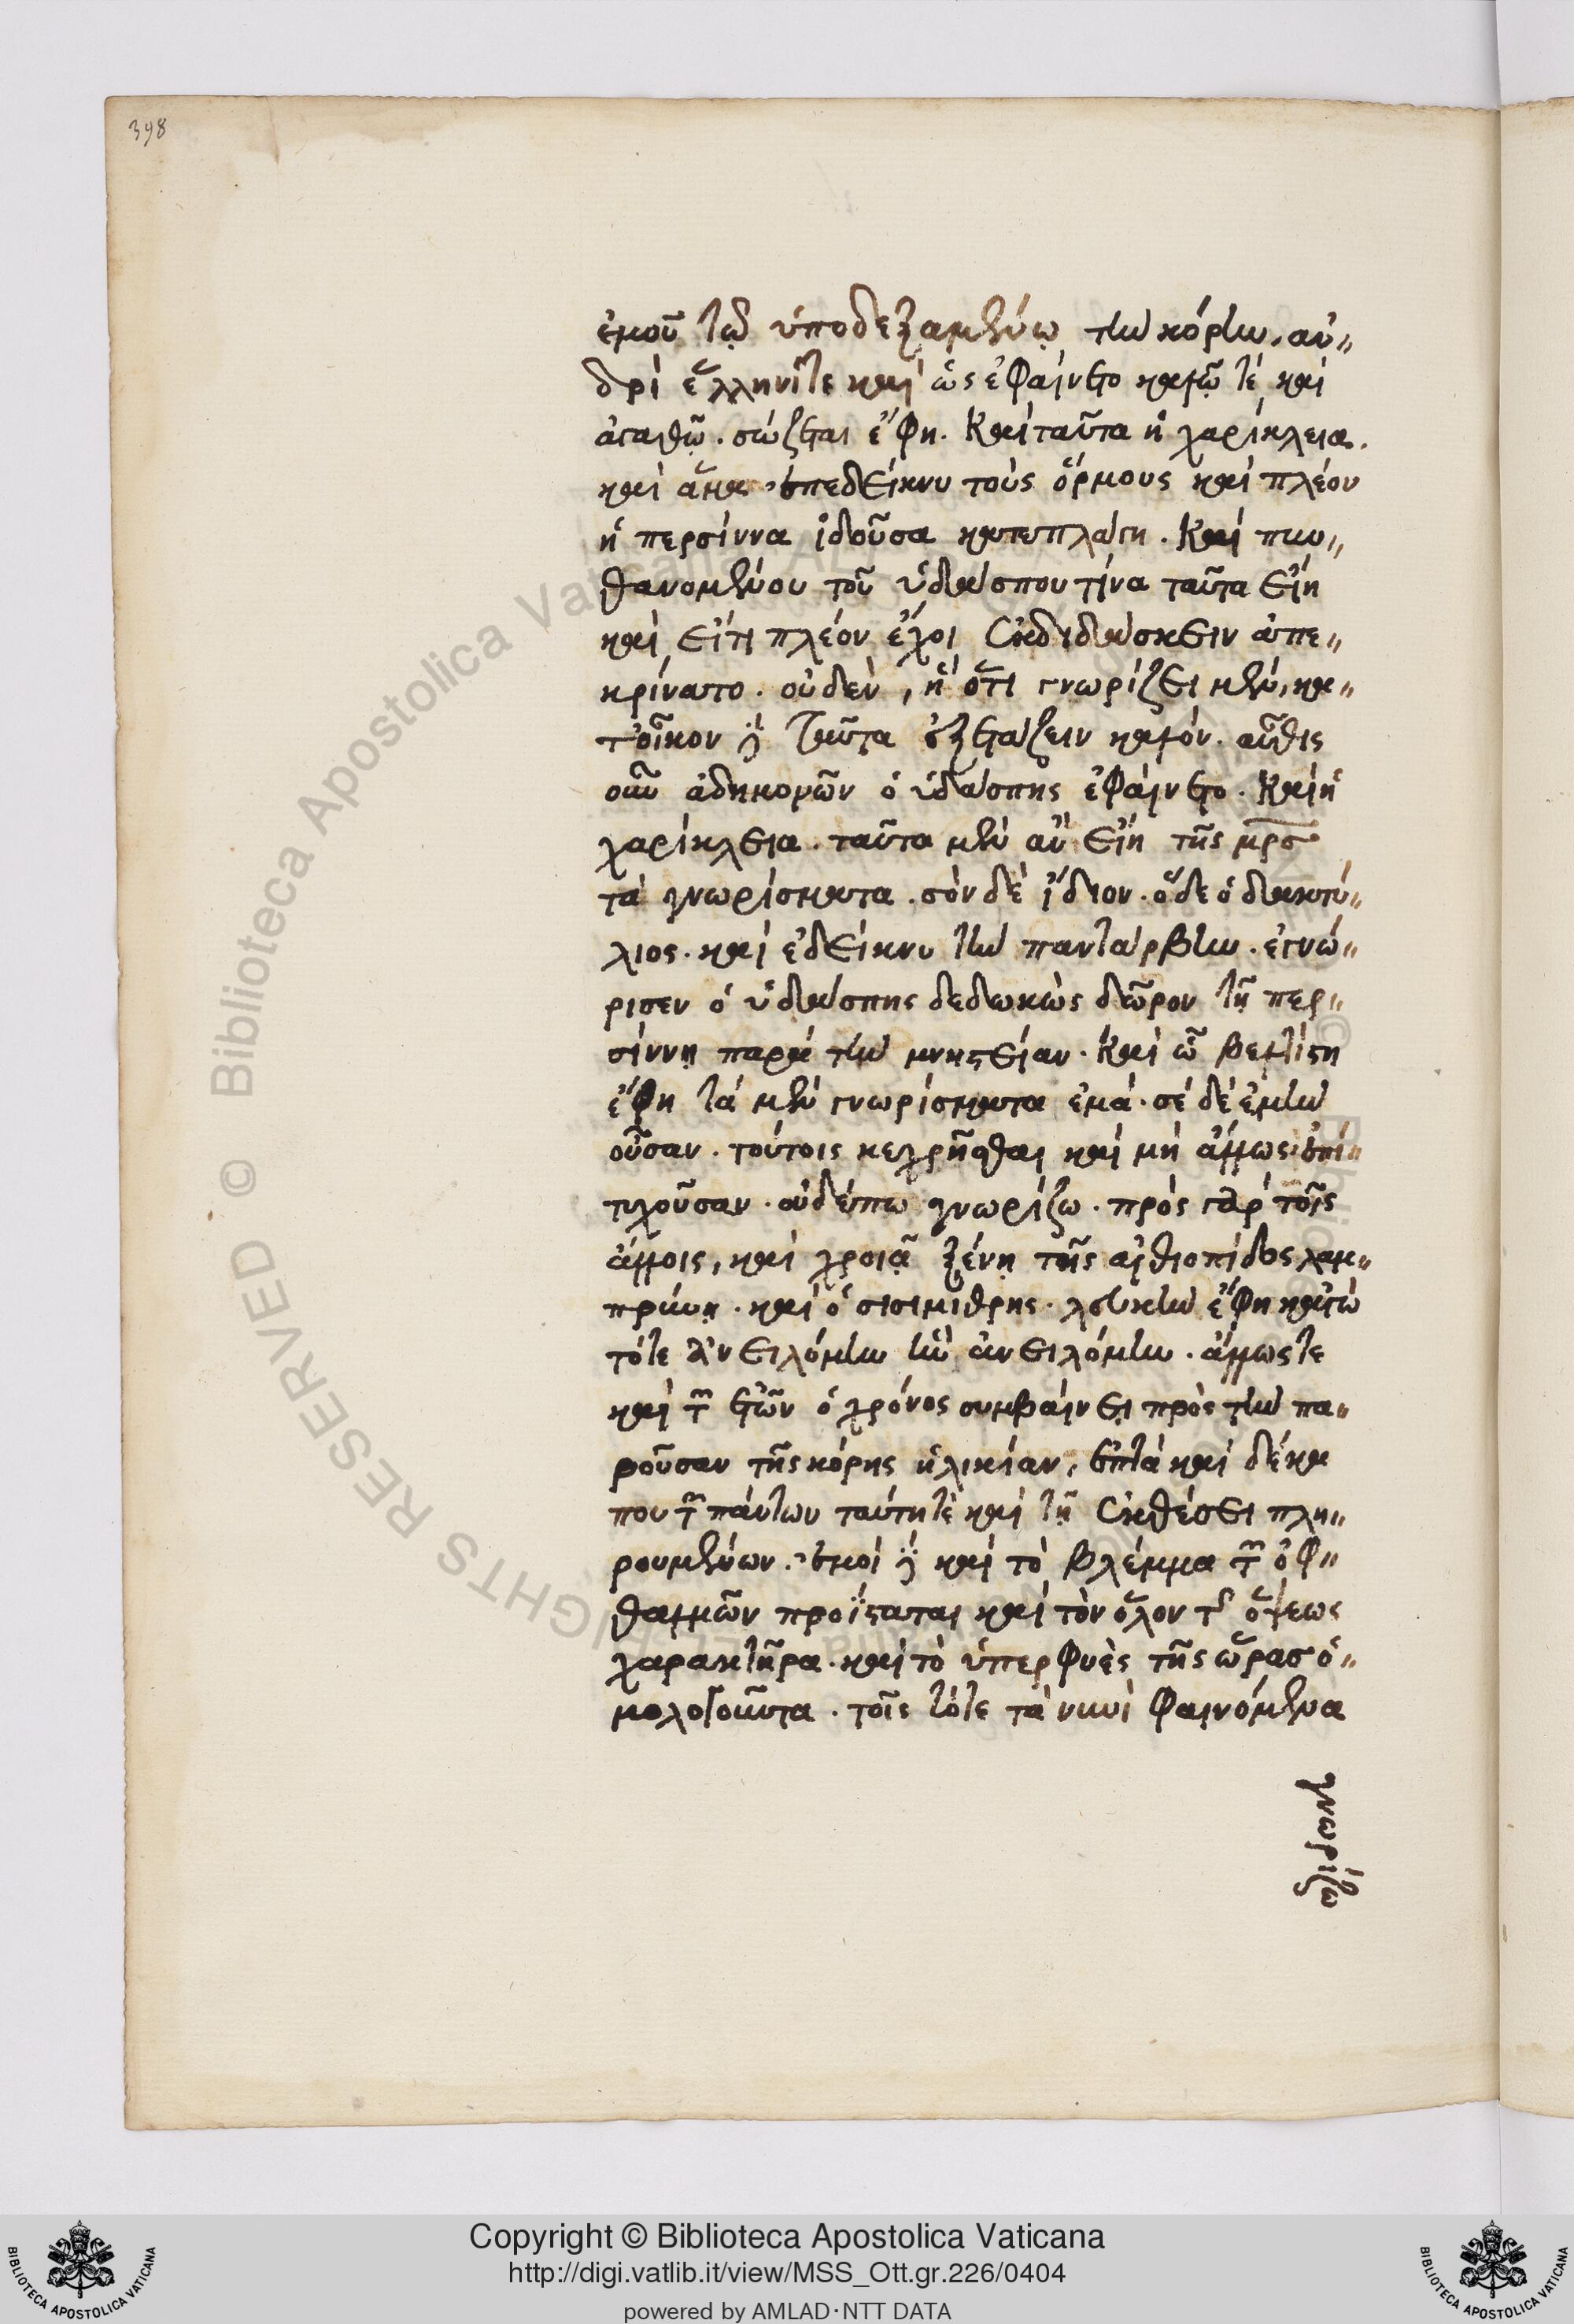 398
ἐμοῦ τῷ ὑποδεξαμένῳ τὴν κόρην. ἀν"
δρὶ ἕλληνί τε καὶ ὡς ἐφαίνετο καλῷ τὲ καὶ
ἀγαθῷ. σώζεται ἔφη. Καὶ ταῦτα ἡ χαρίκλεια.
καὶ ἅμα ὑπεδείκνυ τοὺς ὅρμους καὶ πλέον
ἡ περσίννα ἰδοῦσα κατεπλάγη. Καὶ πυν"
θανομένου τοῦ ὑδάσπου τίνα ταῦτα εἴη
καὶ εἴ τι πλέον ἔχοι ἐκδιδάσκειν ἀπε"
κρίνατο. οὐδὲν, ἢ ὅτι γνωρίζει μὲν, κα"
τοῖκον δὲ ταῦτα ἐξετάζειν καλόν. αὖθις
οὖν ἀδημονῶν ὁ ὑδάσπης ἐφαίνετο. Καὶ ἡ
χαρίκλεια. ταῦτα μὲν ἂν εἴη τῆς μρσ
τὰ γνωρίσματα. σὸν δὲ ἴδιον. ὅδε ὁ δακτύ"
λιος. καὶ ἐδείκνυ τὴν παντάρβην. ἐγνώ"
ρισεν ὁ ὑδάσπης δεδωκὼς δῶρον τῇ περ"
σίννῃ παρὰ τὴν μνηστείαν. Καὶ ὦ βελτίστη
ἔφη τὰ μὲν γνωρίσματα ἐμά. σὲ δὲ ἐμὴν
οὖσαν. τούτοις κεχρῆσθαι καὶ μὴ ἄλλως ἐπι"
τυχοῦσαν. οὐδέπω γνωρίζω. πρὸς γὰρ τοῖς
ἄλλοις, καὶ χροιᾷ ξένῃ τῆς αἰθιοπίδος λαμ"
πρύνῃ. καὶ ὁ σισιμίθρης. λευκὴν ἔφη κἀγὼ
τότε ἀνειλόμην ἣν ἀνειλόμην. ἄλλως τε
καὶ τῶν ἐτῶν ὁ χρόνος συμβαίνει πρὸς τὴν πα"
ροῦσαν τῆς κόρης ἡλικίαν, ἑπτὰ καὶ δέκα
που τῶν πάντων ταύτῃ τὲ καὶ τῇ ἐκθέσει πλη"
ρουμένων. ἐμοὶ δὲ καὶ τὸ βλέμμα τῶν ὀφ"
θαλμῶν προΐσταται καὶ τὸν ὅλον τῆς ὄψεως
χαρακτῆρα. καὶ τὸ ὑπερφυὲς τῆς ὥρασ ὁ"
μολογοῦντα. τοῖς τότε τὰ νυνὶ φαινόμενα
γνωρίζω
Biblioteca Apostolica Vaticana ALL RIGHTS RESERVED ©
Copyright © Biblioteca Apostolica Vaticana
http://digi.vatlib.it/view/MSS_Ott.gr.226/0404
powered by AMLAD·NTT DATA
BIBLIOTECA APOSTOLICA VATICANA
BIBLIOTECA APOSTOLICA VATICANA